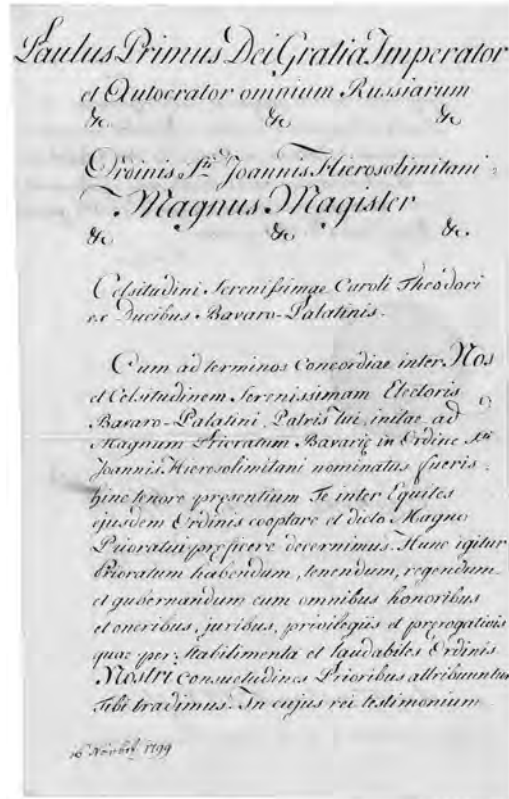 Paulus Primus Dei Gratia Imperator
et Autocrator omnium Russiarum
&c. &c. &c.
Ordinis Sti Joannis Hierosolimitani
Magnus Magister
&c. &c. &c.
Celsitudini Serenissimae Caroli Theodori
ex Ducibus Bavaro-Palatinis.
Cum ad terminos Concordiae inter Nos
et Celsitudinem Serenissimam Electoris
Bavaro-Palatini, Patris tui, initae, ad
Magnum Prioratum Bavariae in Ordine Sti
Joannis Hierosolimitani nominatus fueris,
hinc tenore praesentium Te inter Equites
ejusdem Ordinis cooptare et dicto Magno
Prioratui praeficere decernimus. Hunc igitur
Prioratum habendum, tenendum, regendum
et gubernandum cum omnibus honoribus
et oneribus, juribus, privilegiis et praerogativis
quae per stabilimenta et laudabiles Ordinis
Nostri Consuetudines Prioribus attribuuntur
Tibi tradimus. In cujus rei testimonium
1799